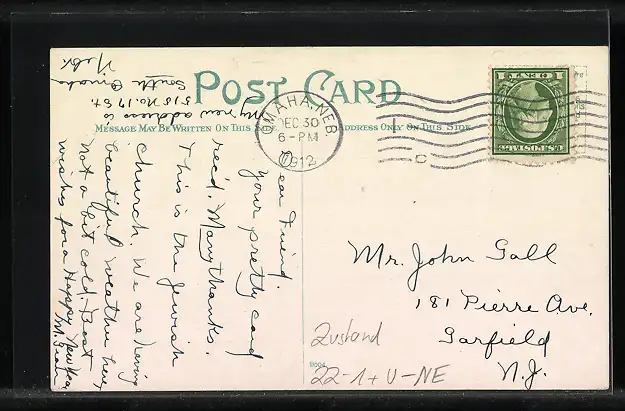 POST CARD
MESSAGE MAY BE WRITTEN ON THIS SIDE
ADDRESS ONLY ON THIS SIDE
OMAHA, NEB.
DEC 30
6-PM
1912
U.S. POSTAGE
1 CENT 1
My new address is
515 No. 19 St.
South Omaha
Nebr.
Dear Friend.
your pretty card
rec'd. Many thanks.
This is the Jewish
church. We are having
beautiful weather here,
not a bit cold. Best
wishes for a Happy New Year
Mr. John Gall
181 Pierre Ave.
Garfield
N.J.
9004
Zustand
22-1+ U-NE